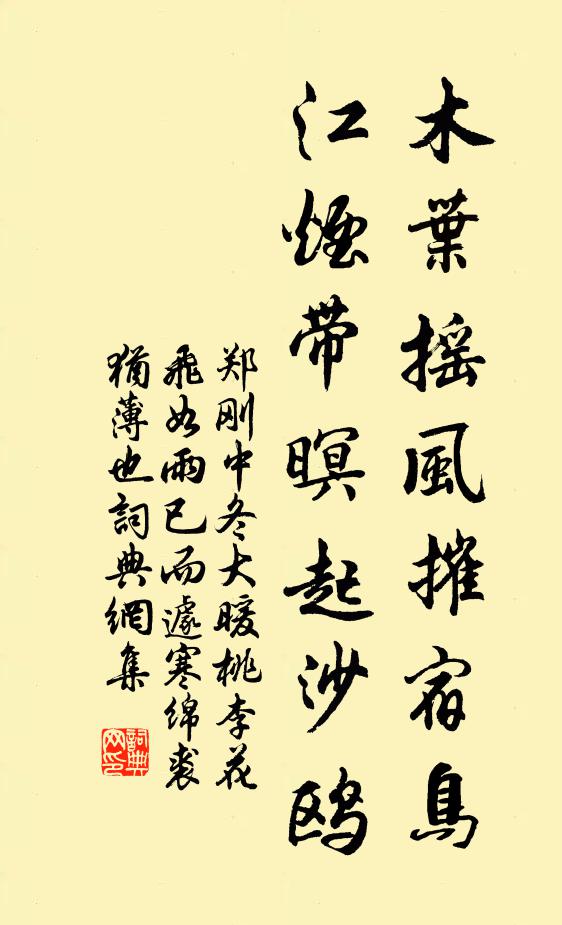 木葉摇風摧宿鳥
江煙帶暝起沙鷗
郑刚中冬大暖桃李花
飛如雨已而遽寒绵裘
猶薄也詞典網集
詞典
网印